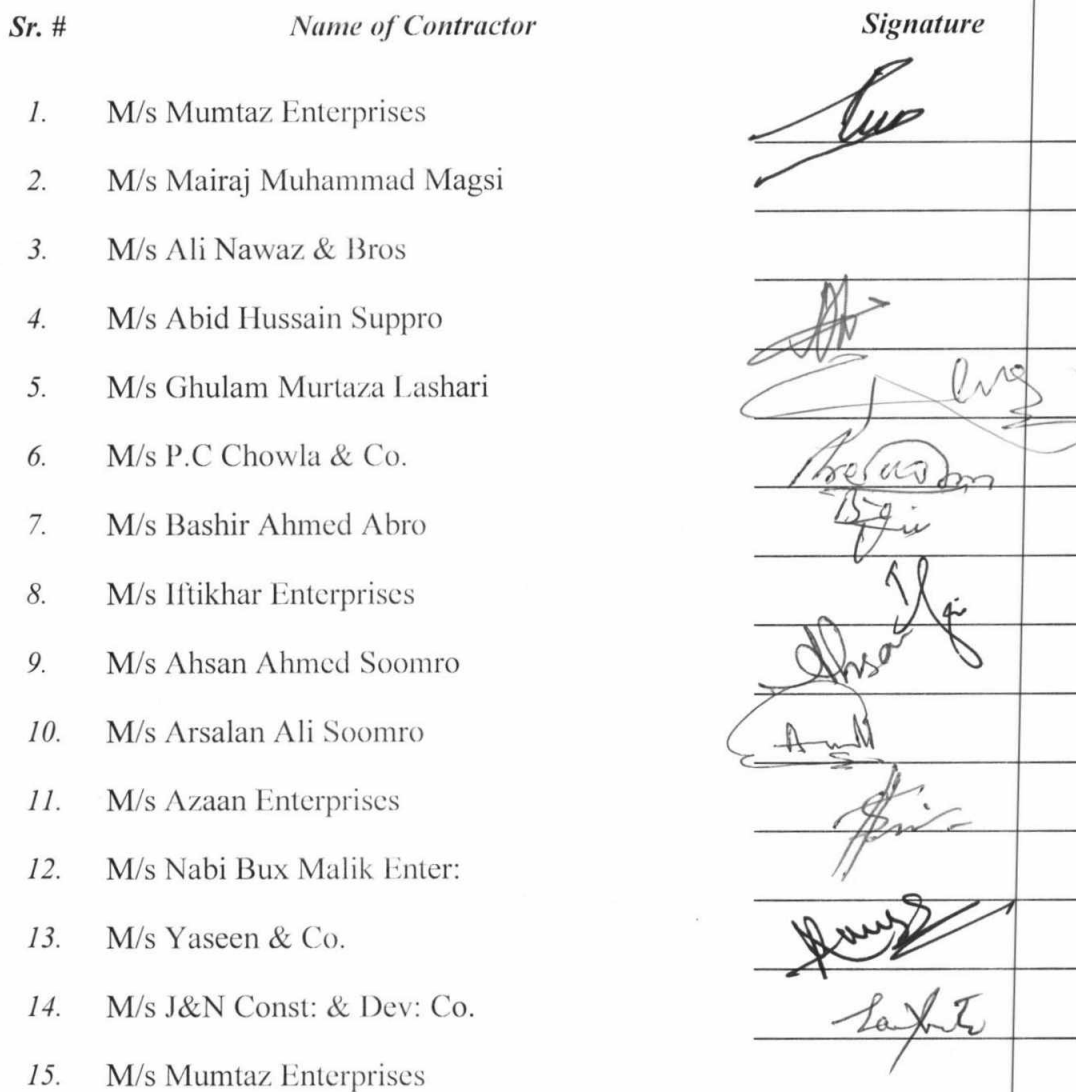 Sr. # Name of Contractor Signature
1. M/s Mumtaz Enterprises
2. M/s Mairaj Muhammad Magsi
3. M/s Ali Nawaz & Bros
4. M/s Abid Hussain Suppro
5. M/s Ghulam Murtaza Lashari
6. M/s P.C Chowla & Co.
7. M/s Bashir Ahmed Abro
8. M/s Iftikhar Enterprises
9. M/s Ahsan Ahmed Soomro
10. M/s Arsalan Ali Soomro
11. M/s Azaan Enterprises
12. M/s Nabi Bux Malik Enter:
13. M/s Yaseen & Co.
14. M/s J&N Const: & Dev: Co.
15. M/s Mumtaz Enterprises